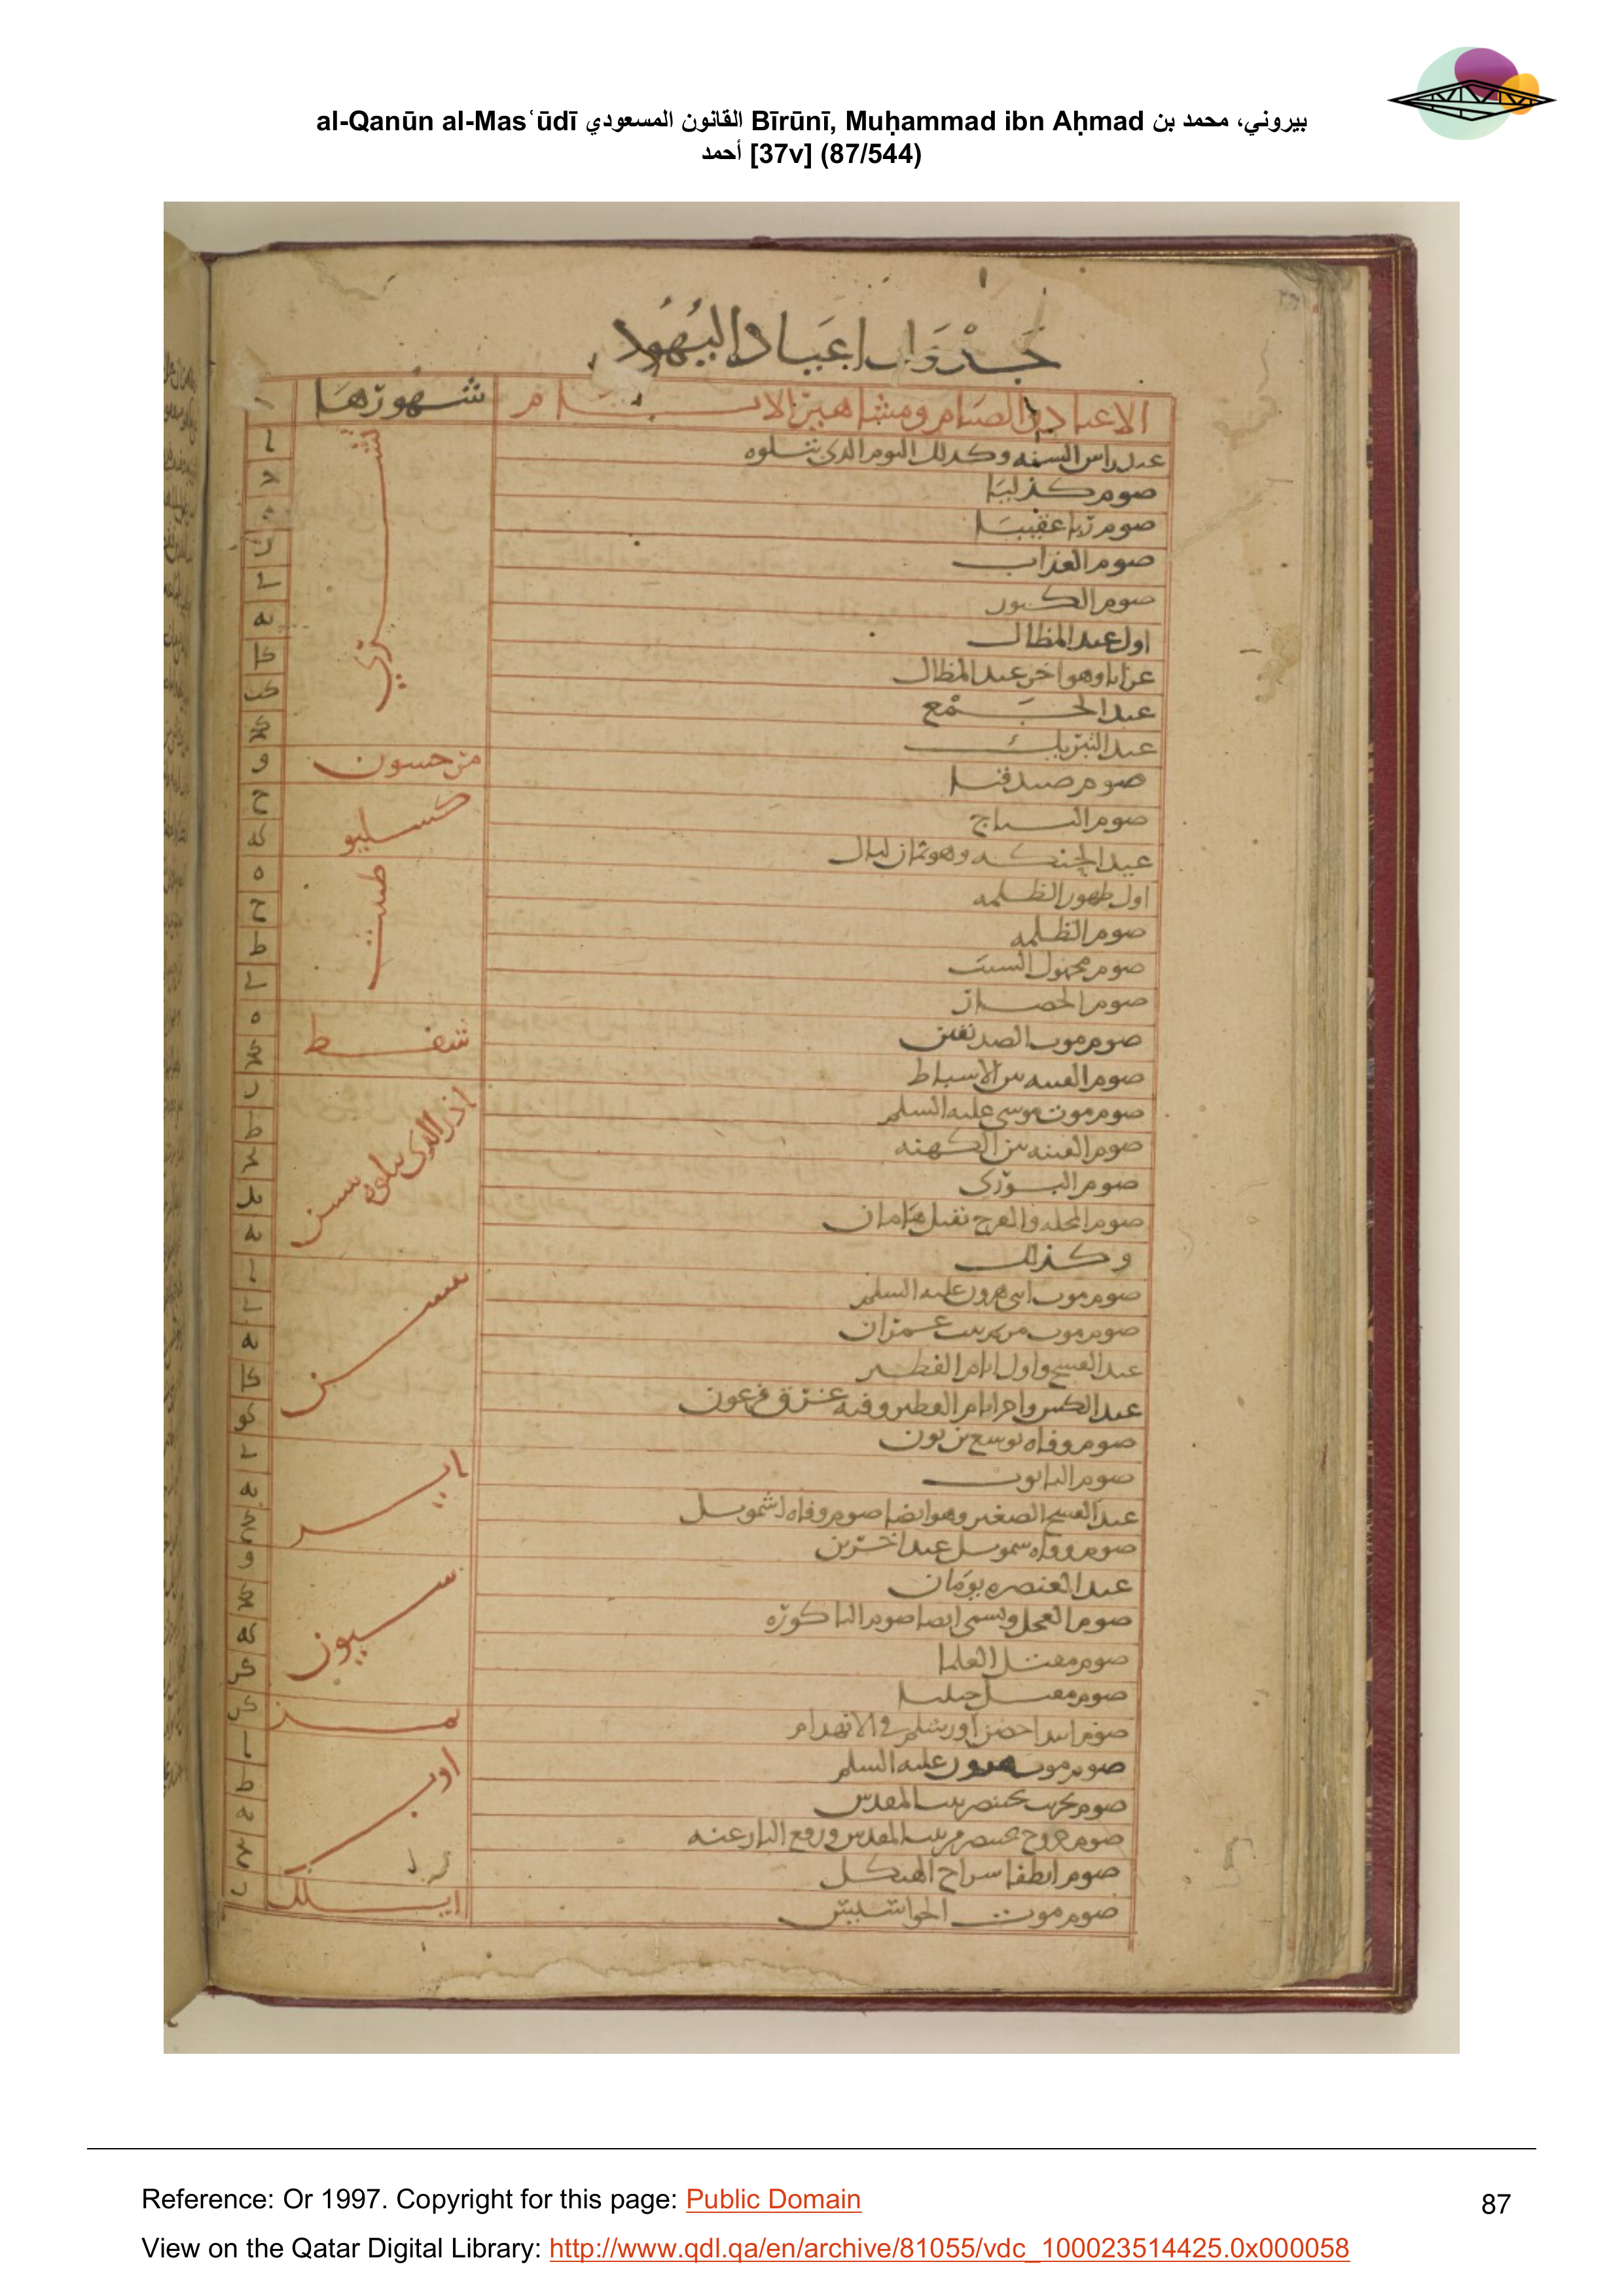 al-Qanūn al-Masʿūdī القانون المسعودي Bīrūnī, Muḥammad ibn Aḥmad بيروني، محمد بن
أحمد [37v] (87/544)
جدول اعياد اليهود
الاعياد والصيام ومشاهير الايام شهورها
عيد راس السنه وكذلك اليوم الذى يتلوه ا تشرى
صوم كدليا
صوم ربا عقيبا ه
صوم العذاب ز
صوم الكبور ى
اول عيد المظال يه
عرابا وهو اخر عيد المظال كا
عيد الجمع كب
عيد التبريك كج
صوم صدقيا و مرحسون
صوم ح كسليو
عيد الحنكه وهو ثمان ليال كه
اول ظهور الظلمه ه طبيت
صوم الظلمه ح
صوم مجهول السبب ط
صوم الحصار ى
صوم موت الصديقين ه شفط
صوم الفتنه بين الاسباط كج
صوم موت موسى عليه السلم ز اذر الذى يتلوه نيسن
صوم الفتنه بين الكهنه ط
صوم البورى
صوم المجله والفرح بقتل هامان يد
وكذلك يه
صوم موت ابنى هرون عليه السلم ا نيسن
صوم موت مريم بنت عمران ى
عيد الفسح واول ايام الفطير يه
عيد الكبس واخر ايام الفطير وفيه غرق فرعون كا
صوم وفاه يوشع بن نون كو
صوم التابوت ى اير
عيد الفسح الصغير وهو ايضا صوم وفاه اشمويل يه
صوم وفاه شمويل كح
عيد العنصره يومان و سيون
صوم العجل ويسمى ايضا صوم الباكوره كج
صوم مقتل العلما كه
صوم مقتل كز
صوم ابتدا حصن اورشلم فى الانهدام تمز
صوم موت هرون عليه السلم ا اوب
صوم تخريب بختنصر بيت المقدس ط
صوم خروج بختنصر من بيت المقدس ورفع النار عنه يه
صوم انطفا سراج الهيكل
صوم موت الجواسيس ز ايلل
Reference: Or 1997. Copyright for this page: Public Domain
87
View on the Qatar Digital Library: http://www.qdl.qa/en/archive/81055/vdc_100023514425.0x000058